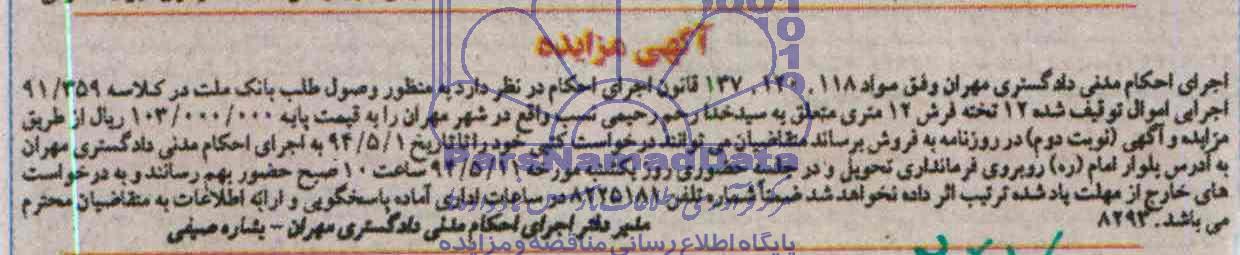 آگهی مزایده
اجرای احکام مدنی دادگستری مهران وفق مواد ۱۱۸ ، ۱۲۰ ، ۱۳۷ قانون اجرای احکام در نظر دارد به منظور وصول طلب بانک ملت در کلاسه ۹۱/۳۵۹
اجرایی اموال توقیف شده ۱۲ تخته فرش ۱۲ متری متعلق به سیدخدا رحم رحیمی نسب واقع در شهر مهران را به قیمت پایه ۱۰۳/۰۰۰/۰۰۰ ریال از طریق
مزایده و آگهی (نوبت دوم) در روزنامه به فروش برساند متقاضیان می توانند درخواست کتبی خود را تا تاریخ ۹۴/۵/۱ به اجرای احکام مدنی دادگستری مهران
به آدرس بلوار امام (ره) روبروی فرمانداری تحویل و در جلسه حضوری روز یکشنبه مورخه ساعت ۱۰ صبح حضور بهم رسانند و به درخواست
های خارج از مهلت یاد شده ترتیب اثر داده نخواهد شد ضمناً شماره تلفن در ساعات اداری آماده پاسخگویی و ارائه اطلاعات به متقاضیان محترم
می باشد. ۸۲۹۳
مدیر دفتر اجرای احکام مدنی دادگستری مهران - بشاره صیفی
ParsNamadData
پایگاه اطلاع رسانی مناقصه و مزایده